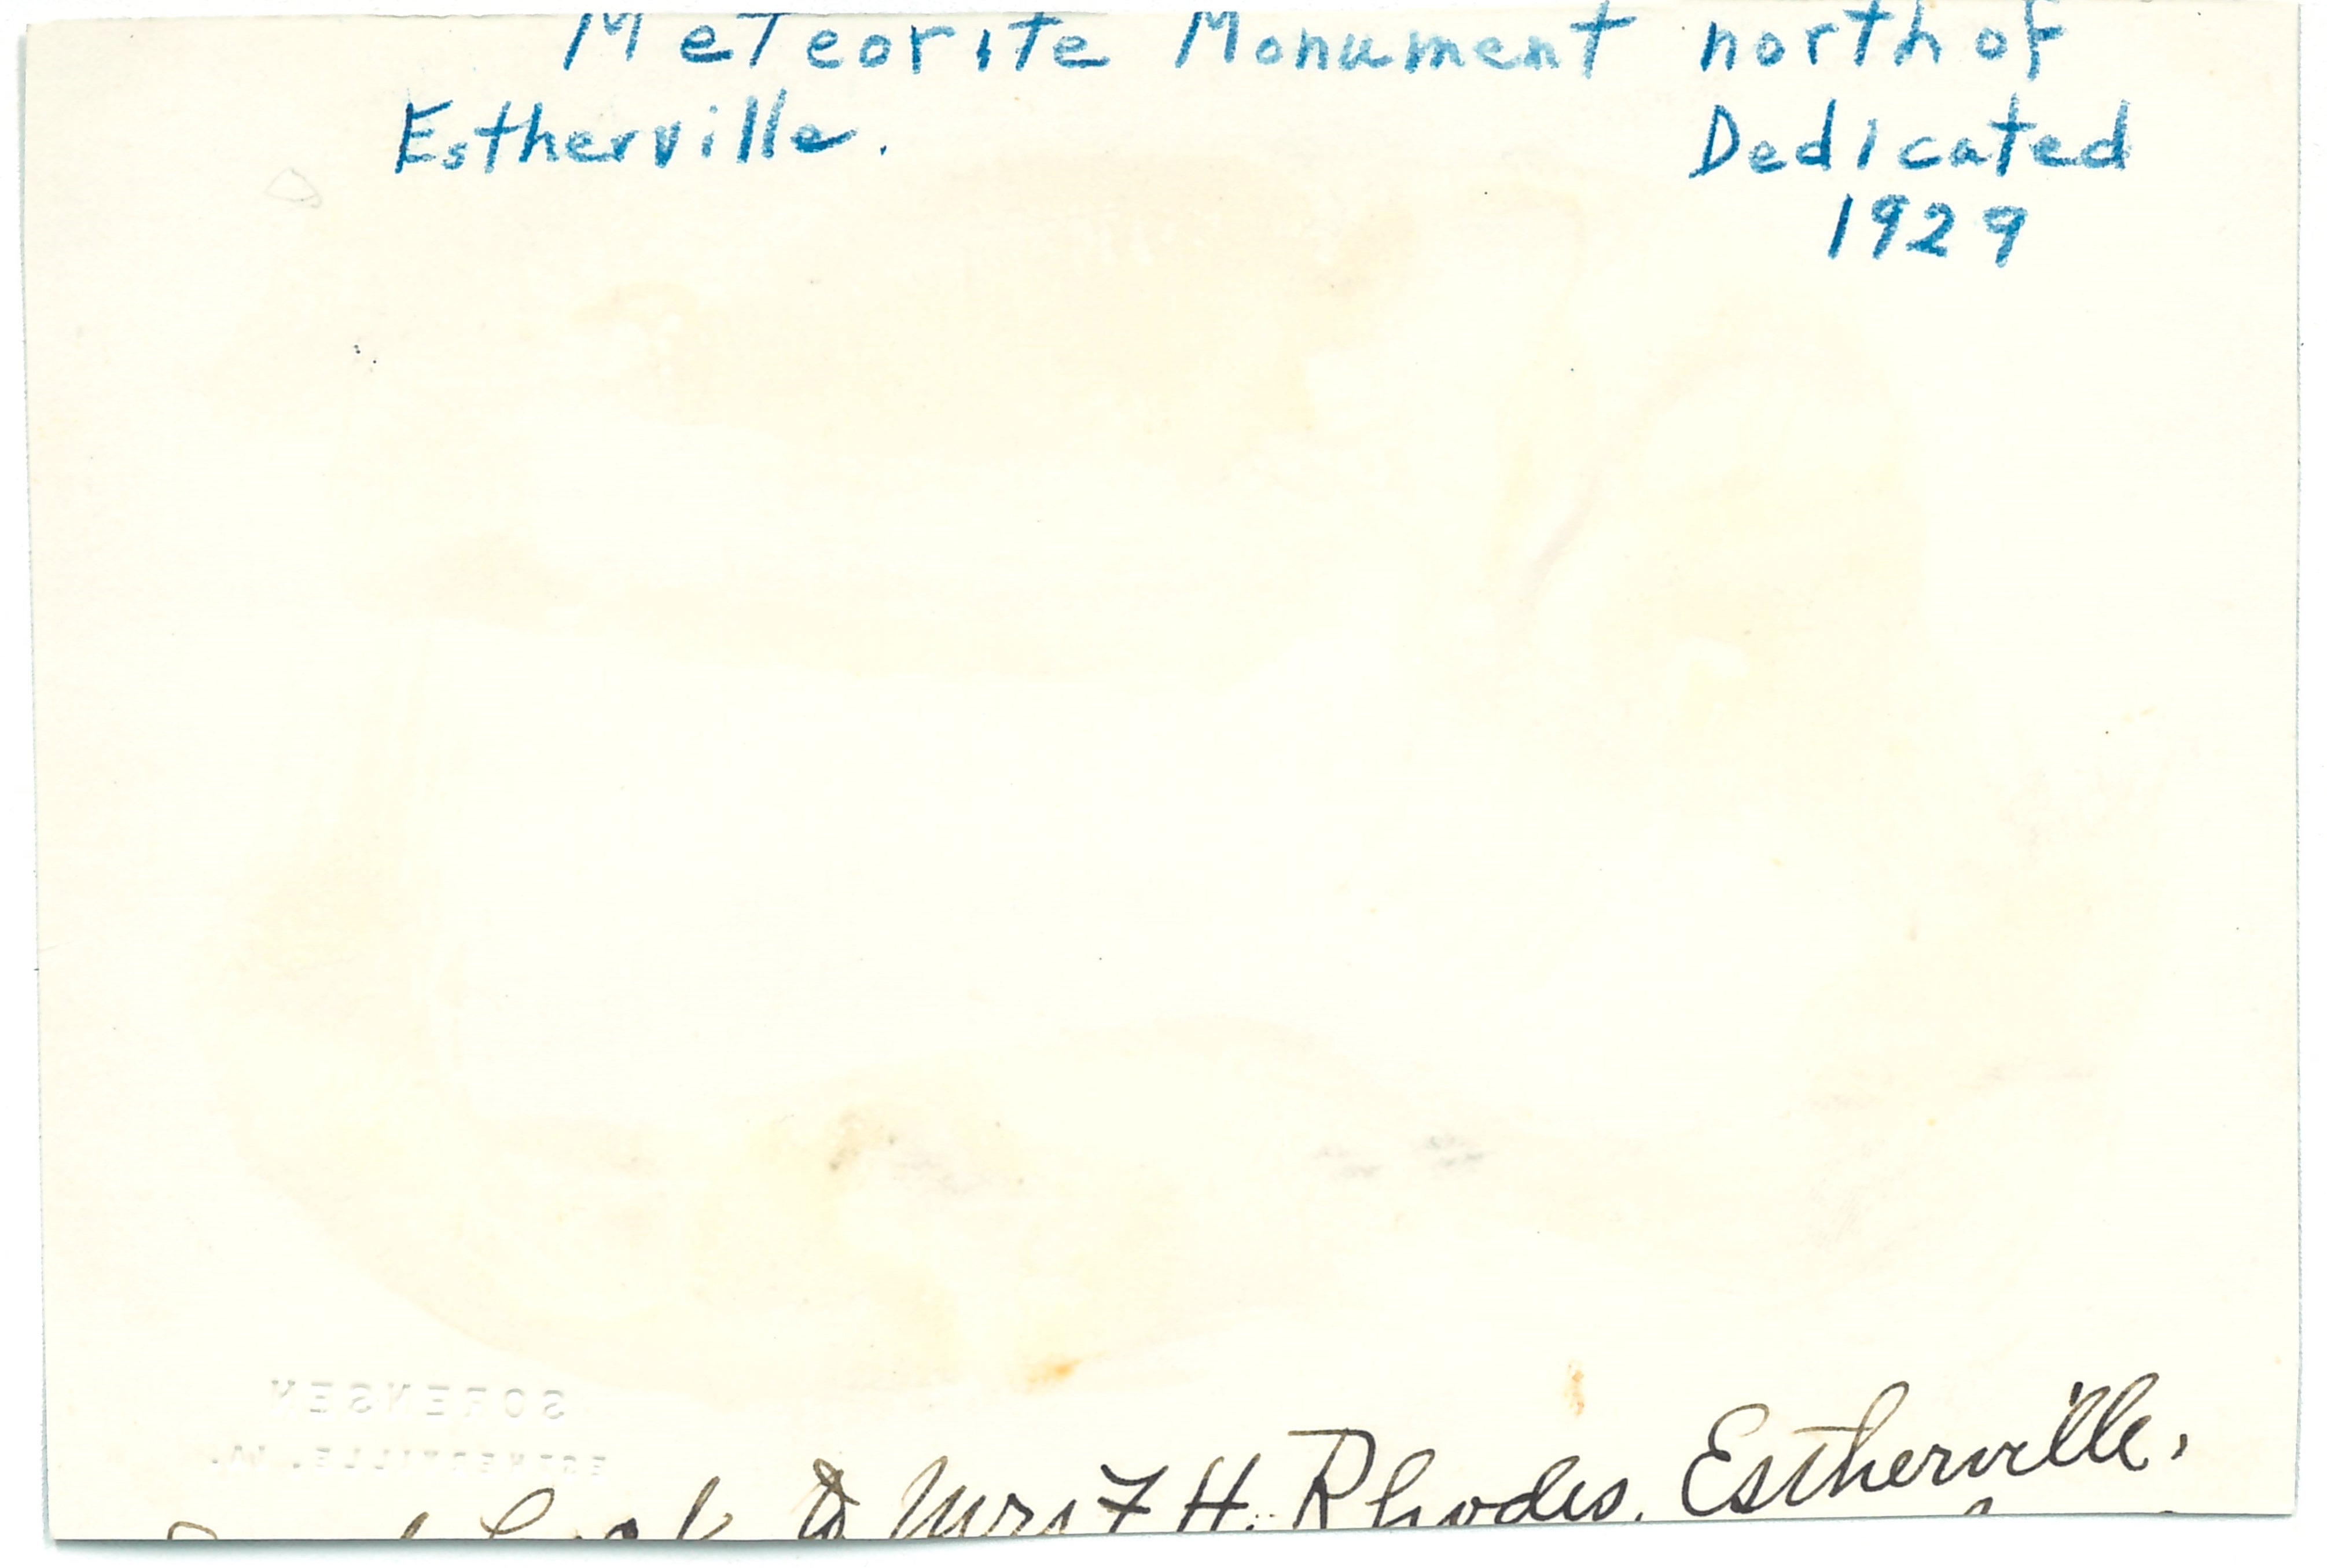 Meteorite Monument north of
Estherville. Dedicated
1929
SORENSEN
ESTHERVILLE, IA.
Mrs F H. Rhodes, Estherville.